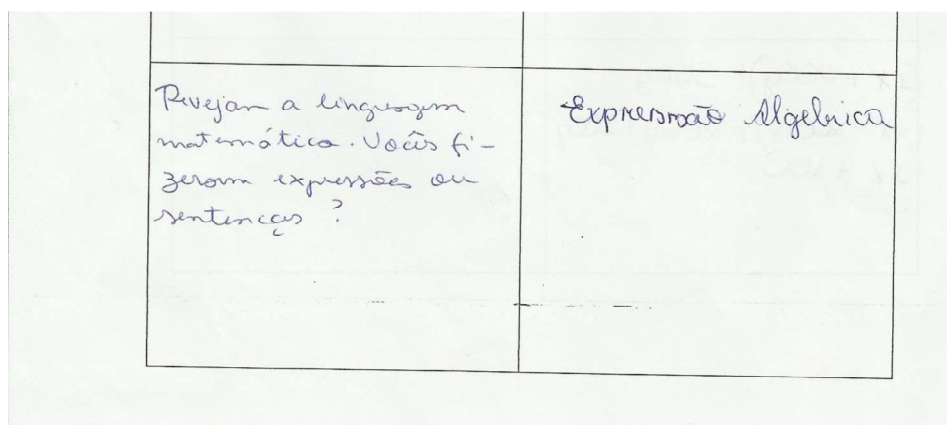 Revejam a linguagem
matemática. Vocês fi-
zeram expressões ou
sentenças ?
Expressão Algebrica